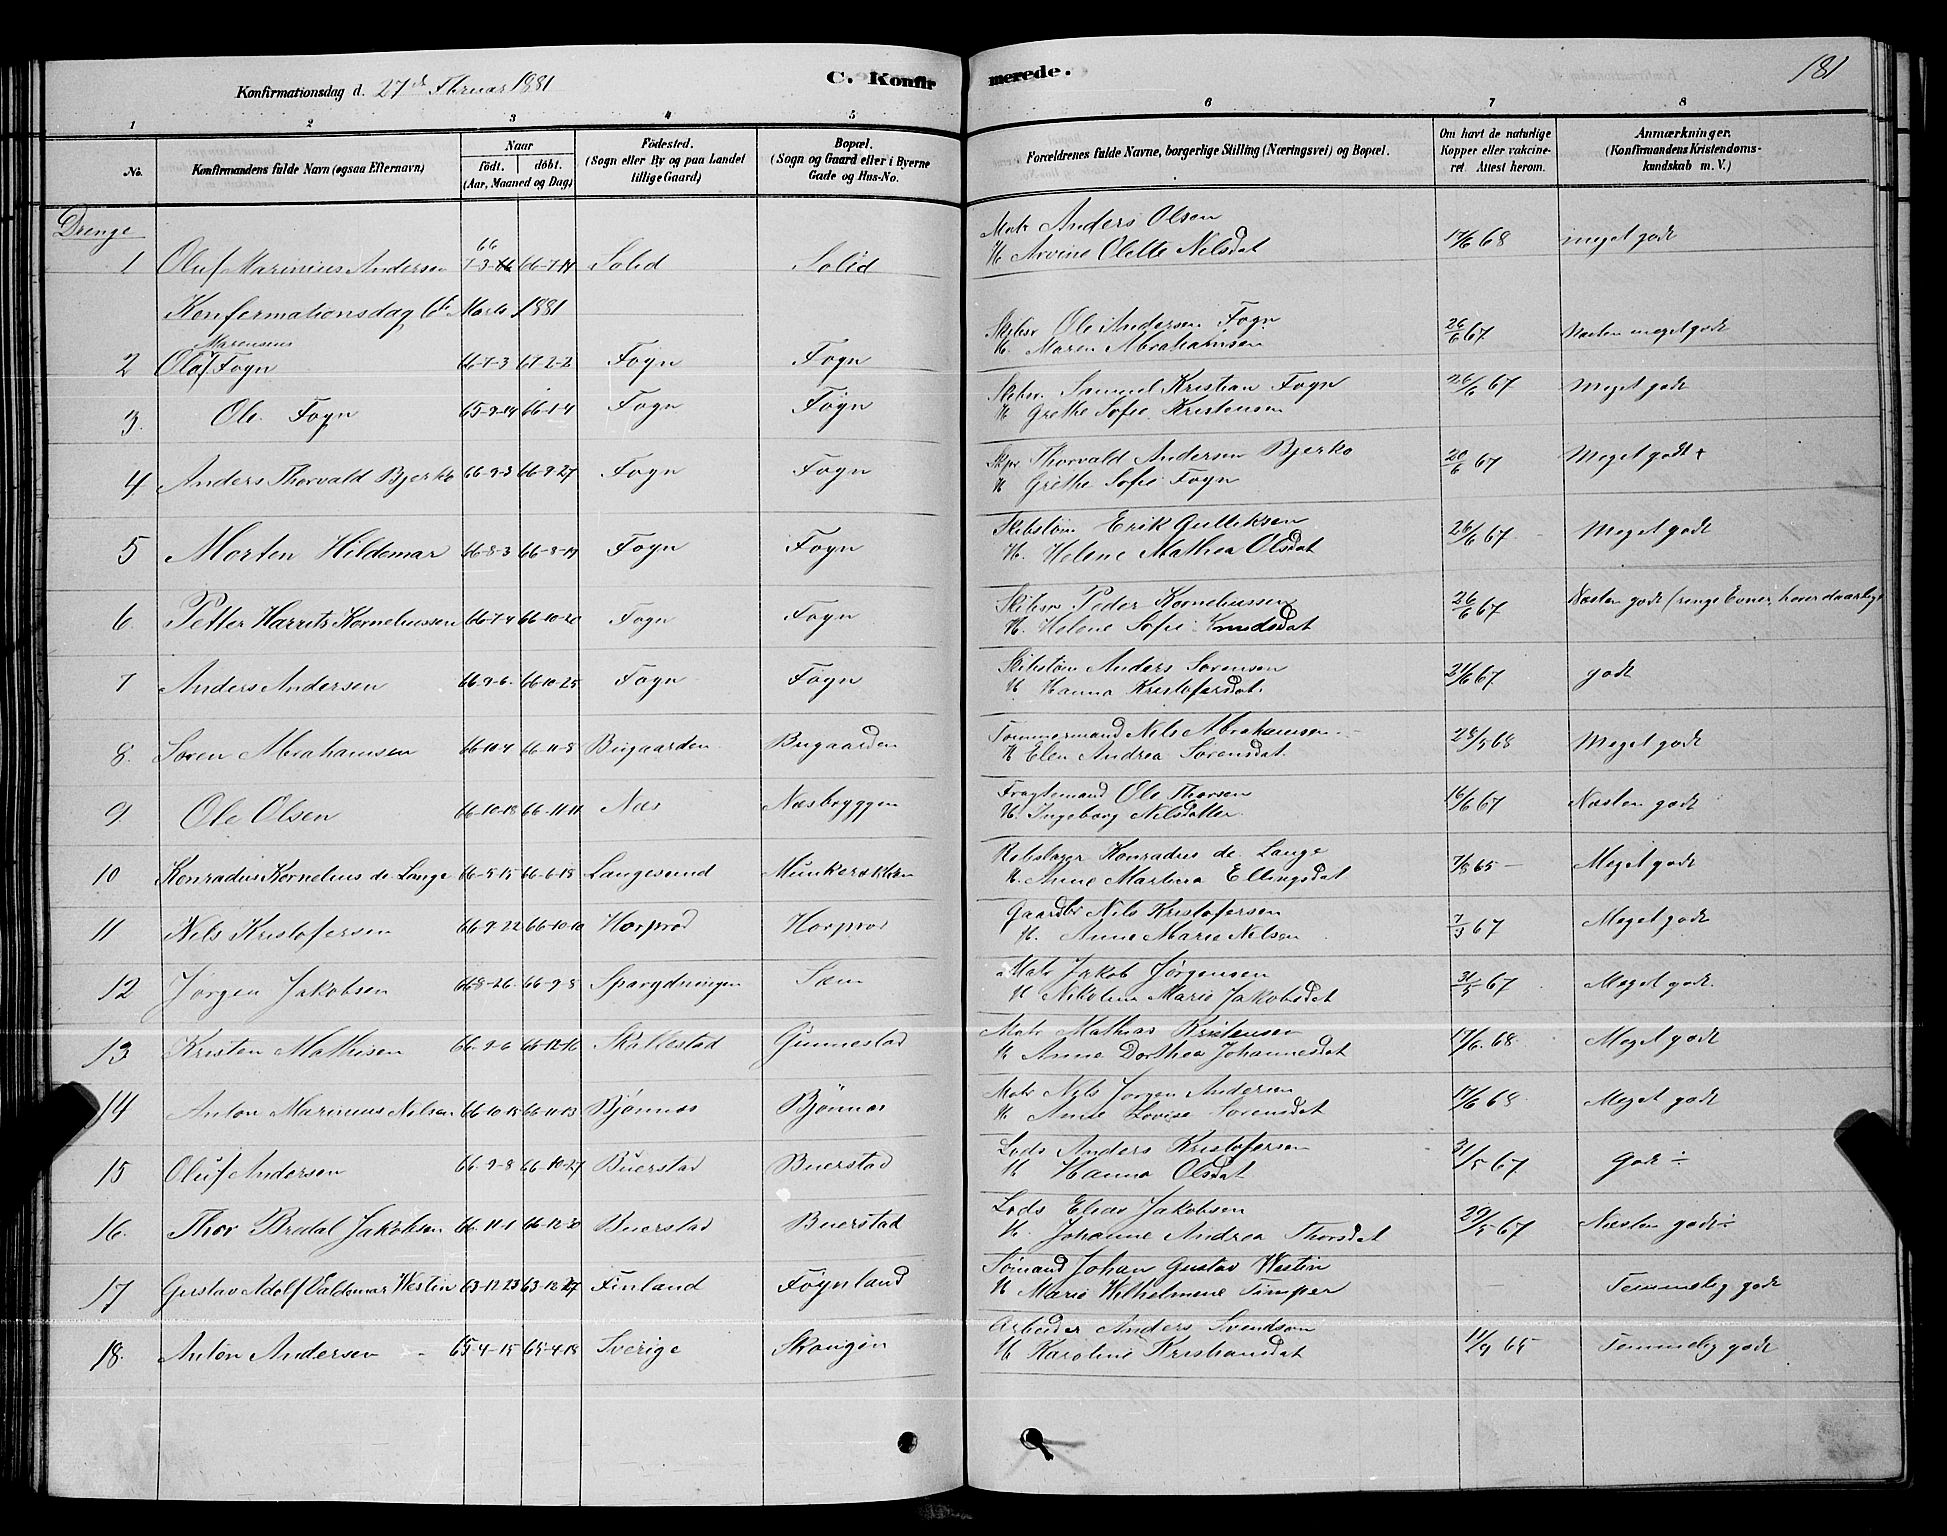 Konfirmationsdag d. 27de Februar 1881
C. Konfirmerede.
181
1 2 3 4 5 6 7 8
No.
Konfirmandens fulde Navn (ogsaa Efternavn)
Naar
Födt. döbt.
(Aar, Maaned og Dag)
Födested.
(Sogn eller By og paa Landet
tillige Gaard)
Bopæl.
(Sogn og Gaard eller i Byerne
Gade og Hus-No.
Forældrenes fulde Navne, borgerlige Stilling (Næringsvei) og Bopæl.
Om havt de naturlige
Kopper eller vakcine-
ret. Attest herom.
Anmærkninger.
(Konfirmandens Kristendoms-
kundskab m. V.)
Drenge
1 Oluf Marinius Andersen 66 7-3 66-7-14 Solid Solid Matr Anders Olsen
H. Arvine Olette Nilsdat 17/6 68 meget godt
Konfermationsdag 6te Marts 1881
2 Olaf Marensens Fogn 66-7-3 67-2-2 Fogn Fogn Skibsr Ole Andersen Fogn
H. Maren Abrahamsen 26/6 67. Næsten meget godt
3. Ole Fogn 65-9-14 66-1-4 Fogn Fogn Skibsr. Samuel Kristian Fogn
H Grethe Sofie Kristensen 26/6 67 Meget godt
4 Anders Thorvald Bjerko 66-9-3 66-9-27 Fogn Fogn Skpr Thorvald Andersen Bjerko
H Grethe Sofie Fogn 20/6 67 Meget godt +
5 Morten Hildemar 66-8-3 66-8-19 Fogn Fogn Skibstöm Erik Gulliksen
H. Helene Mathea Olsdat 26/6 67 Meget godt
6. Petter Harrits Korneliussen 66-7-4 66-10-20 Fogn Fogn Skibsr Peder Korneliussen
H. Helene Sofie Knudsdat 26/6 67 Næsten godt (ringe Evner, hører daarligt
7 Anders Andersen 66-9-6. 66-10-25 Fogn Fogn Skibstöm Anders Sorensen
H Hanna Kristofersdat. 21/6 67 godt
8. Soren Abrahamsen 66-10-4 66-11-8 Bugaarden Bugaarden Tommermand Nils Abrahamsen
H Elen Andrea Sorensdat. 28/5 68 Meget godt
9 Ole Olsen 66-10-18 66-11-11 Næs Næsbryggen Fragtemand Ole Thorsen
H. Ingeborg Nilsdatter. 16/6 67 Næsten godt
10 Konradius Kornelius de Lange 66-5-15 66-6-18 Langesund Munkerækken Rebslager Konradius de Lange
H. Anne Martina Ellingsdat 7/8 65 - Meget godt
11 Nils Kristofersen 66-9-22 66-10-10 Horprod Horprod Gaardbr Nils Kristofersen
H. Anne Marie Nilsen 7/3 67 Meget godt
12 Jorgen Jakobsen 66-8-26. 66-9-8 Sparydningen Sæm Matr Jakob Jørgensen
H Nikoline Marie Jakobsdat 31/5 67 Meget godt.
13 Kristen Mathisen 66-9-6 66-12-16 Skallestad Gunnestad Matr Mathias Kristensen
H Anne Dorthea Johannesdat 17/6. 68. Meget godt
14 Anton Marinius Nilsen 66-10-15 66-11-13 Bjönnes Bjönnes Matr Nils Jorgen Andersen
H Anne Lovise Sorensdat 17/6 68 Meget godt
15 Oluf Andersen 66-9-8 66-10-27 Buerstad Buerstad Lods Anders Kristofersen
H Hanna Olsdat 31/5 67 Godt ÷
16. Thor Bredal Jakobsen 66-11-1 66-12-30 Buerstad Buerstad Lods Elias Jakobsen
H. Johanne Andrea Thorsdat 29/5 67 Næsten godt ÷
17 Gustav Adolf Valdemar Westin 63-12-23 63-12-27 Finland Föynland Sömand Johan Gustav Westin
H Marie Wilhelmene Timper Temmelig godt
18. Anton Andersen 65-4-15 65-4-18 Sverige Skougen Arbeider Anders Svendsen
H Karoline Kristiansdat 11/9 65 Temmelig godt